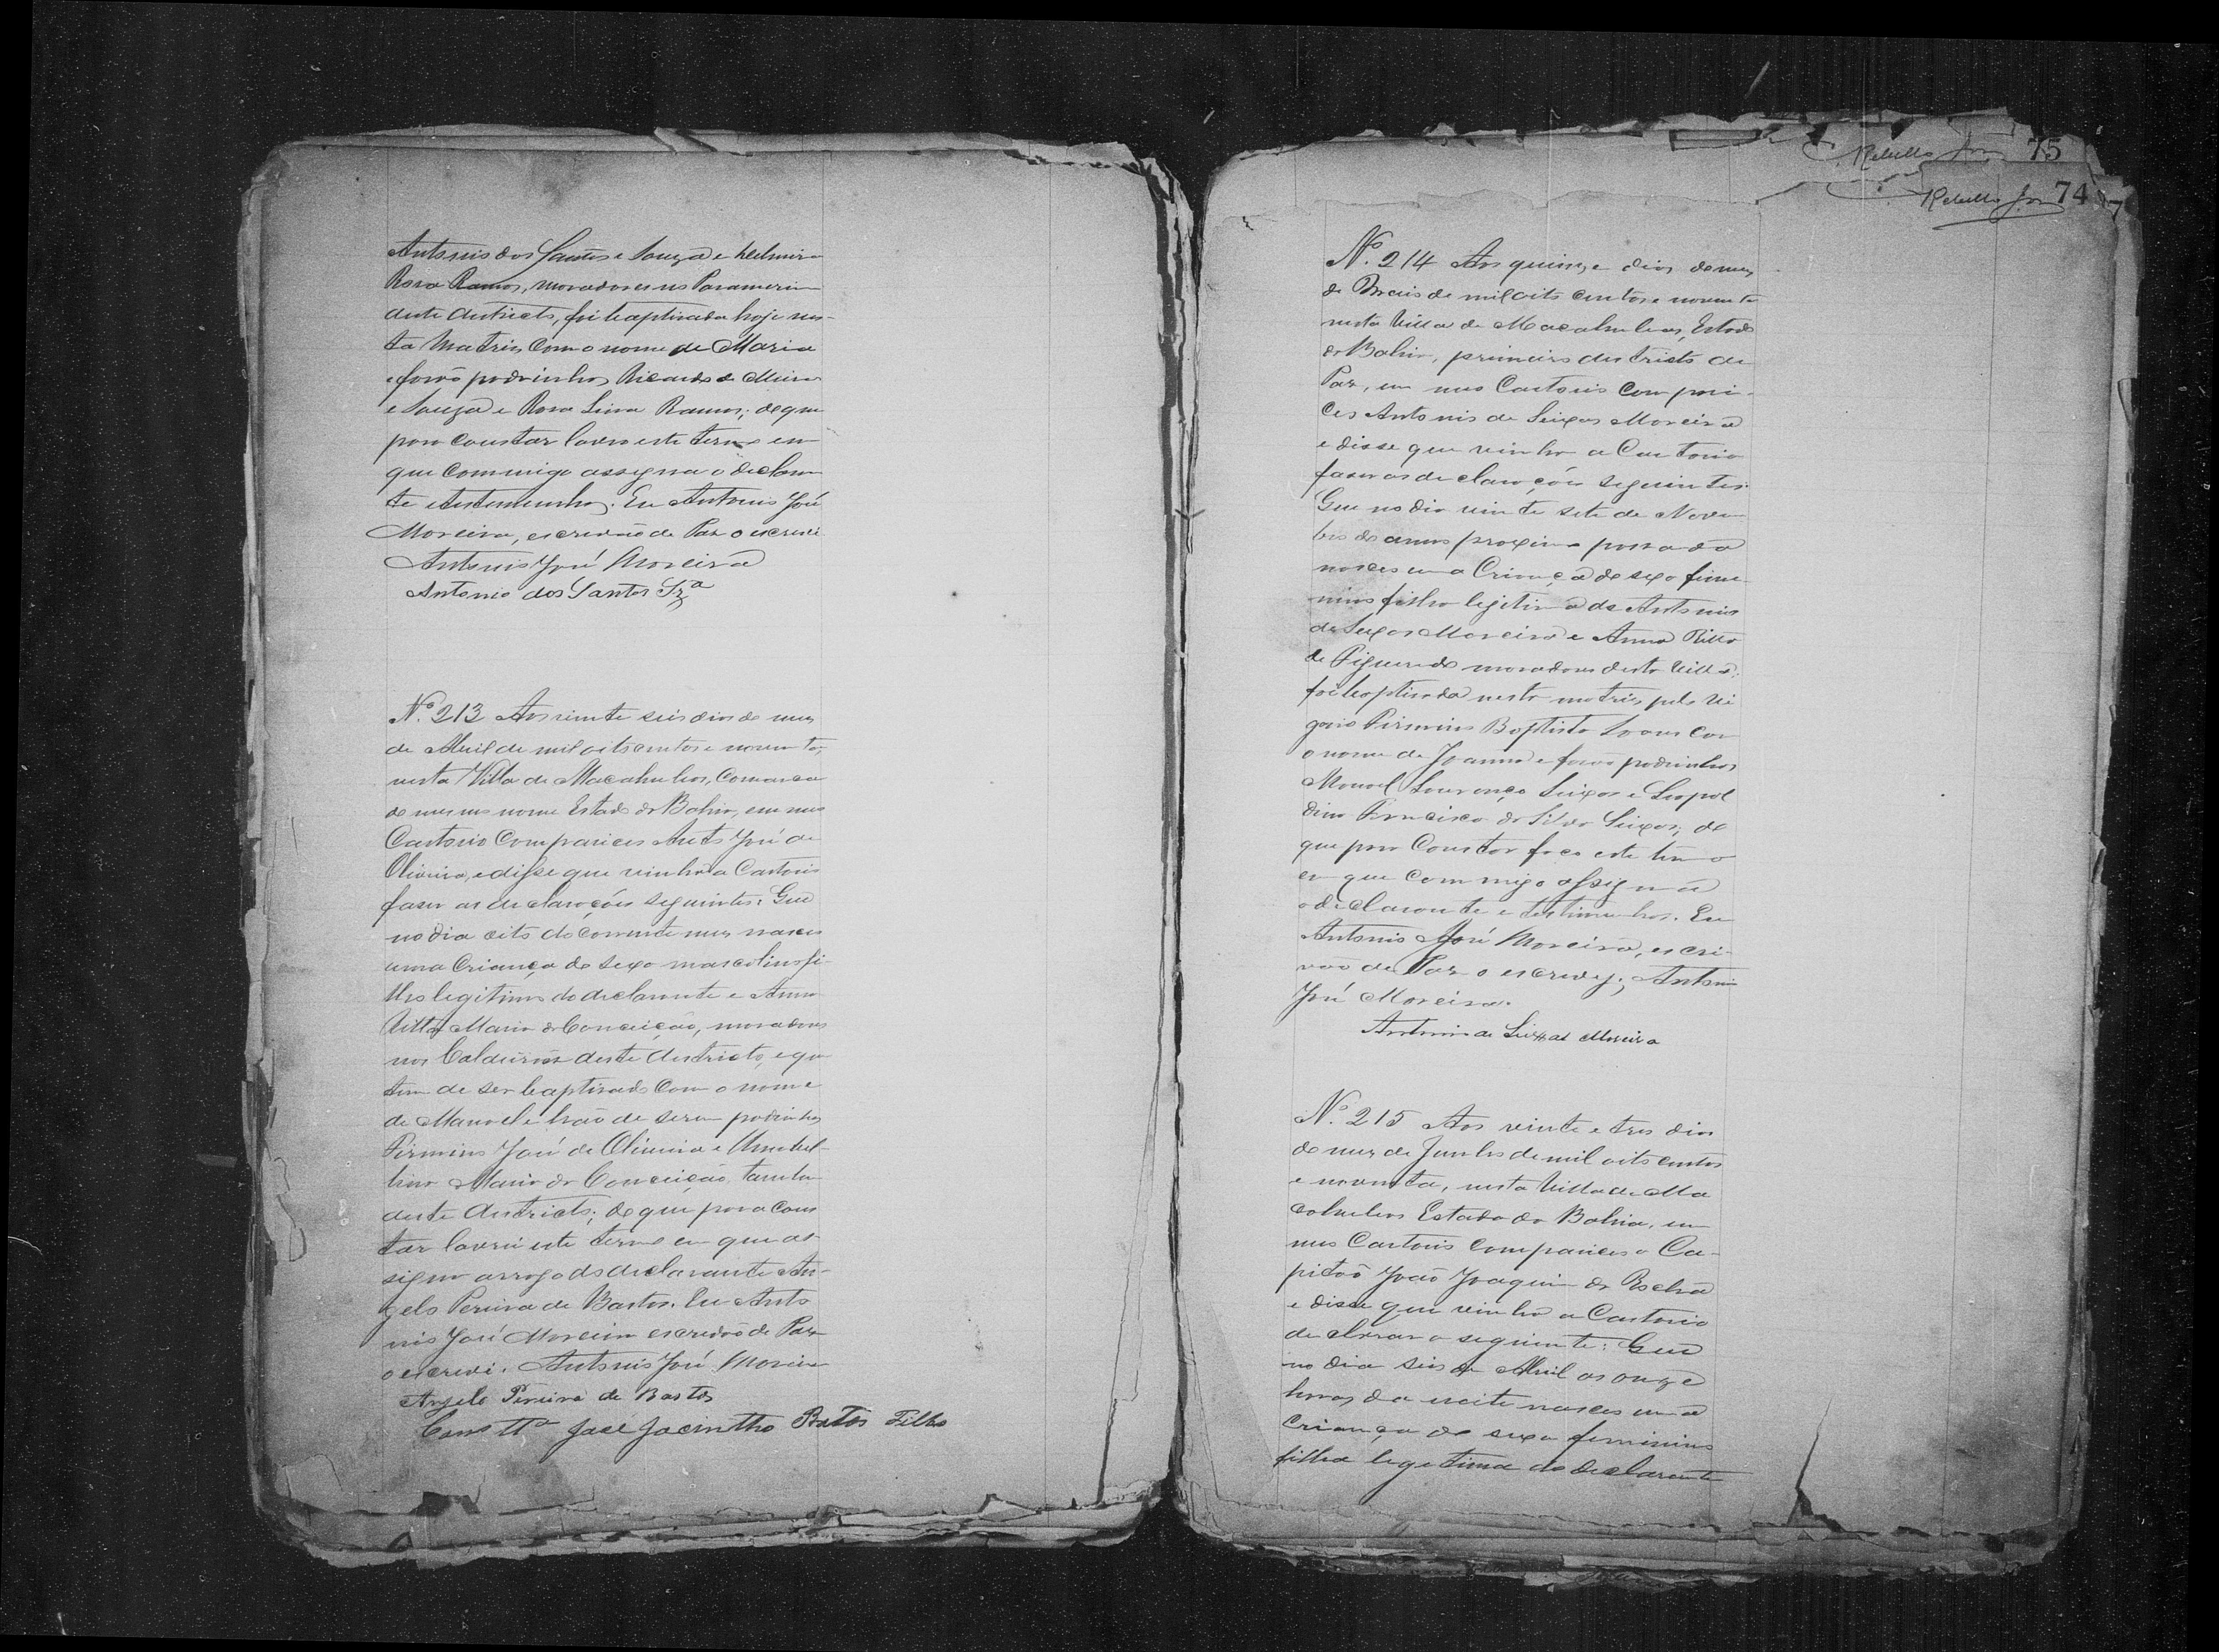 Antonio dos Santos e Souza e Helmira
Rosa Ramos, moradores no Paramerim
deste districto, foi baptisada hoje nes-
ta Matriz com o nome de Maria
e forão padrinhos Ricardo de
e Souza e Rosa Lina Ramos; de que
para constar lavro este termo em
que commigo assigna o declaran
te e testemunhas. Eu Antonio José
Moreira, escrivão de Paz o escrevi
Antonio José Moreira
Antonio dos Santos Sza
Nº 213 Aos vinte seis dias do mez
de Abril de mil oito centos e noventa,
nesta Villa de Macahubas, Comarca
do mesmo nome Estado da Bahia, em meo
Cartorio Compareceo Antº José de
Oliveira, e disse que vinha a Cartorio
faser as declarações seguintes: Que
no dia oito do corrente mez nasceo
uma Criança do sexo mascolino fi-
lho legitimo do declarante e Anna
Ritta Maria da Conceição, moradores
nos Caldeirões deste districto, e que
tem de ser baptisado com o nome
de Manoel e hão de serem padrinhos
Firmino José de Oliveira e Umbel-
lina Maria da Conceição, também
deste districto; de que para cons
tar lavrei este termo em que as-
signa arrogo do declarante An-
gelo Pereira de Bastos. Eu Anto
nio José Moreira escrivão de Paz
o escrevi. Antonio José Moreira
Angelo Pereira de Bastos
José Jacintho Bastos Filho
Rebello Jor 75
Rebello Jor 74
Nº. 214 Aos quinze dias do mez
de Maio de mil oito centos e noventa
nesta Villa de Macahubas, Estado
da Bahia, primeiro districto de
Paz, em meo Cartorio compare-
ceo Antonio de Seixas Moreira
e disse que vinha a Cartorio
faser as declarações seguintes:
Que no dia vinte sete de Novem
bro do anno proximo passado
nasceo uma Criança do sexo feme-
nino filha legitima de Antonio
de Seixas Moreira e Anna Ritta
de Figueredo moradores desta Villa;
foi baptisada nesta matriz pelo Vi
gario Firmino Baptista Soares com
o nome de Joanna e forão padrinhos
Manoel Lourenço Seixas e Leopol
dina Francisca da Silva Seixas; de
que para Constar faço este termo
em que commigo assigna
o declarante e testimunhas. Eu
Antonio José Moreira, escri-
vão de Paz o escrevy; Antonio
José Moreira.
Antonio de Seixas Moreira
Nº 215 Aos vinte e tres dias
do mez de Junho de mil oito centos
e noventa, nesta Villa de Ma
cahubas Estado da Bahia, em
meo Cartorio compareceo o Ca-
pitão João Joaquim da Rocha
e disse que vinha a Cartorio
declarar o seguinte: Que
no dia seis de Abril as onze
horas da noite nasceo uma
criança do sexo feminino
filha legetima do declarante